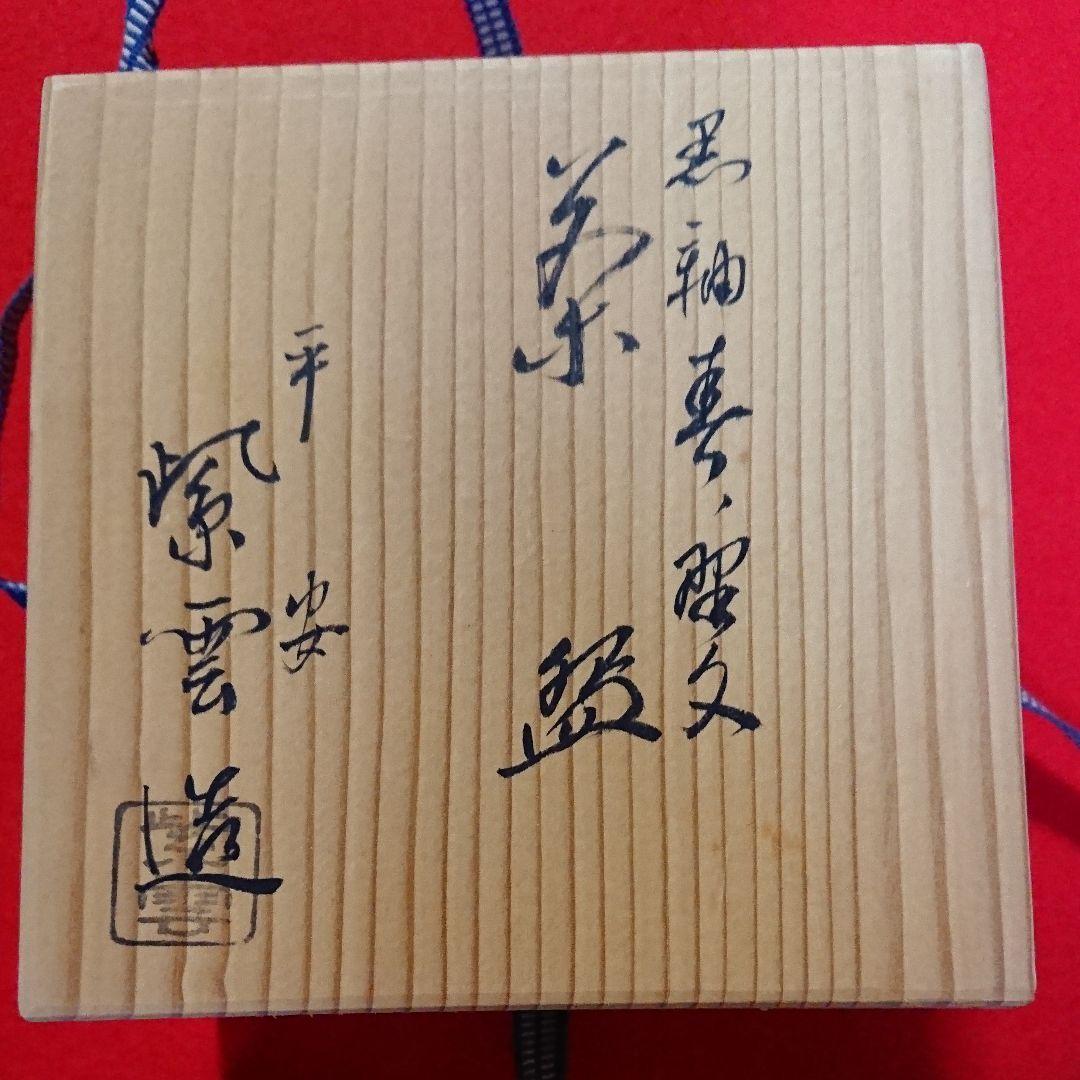 黒釉春ノ野文
茶盌
平安
紫雲造
紫雲